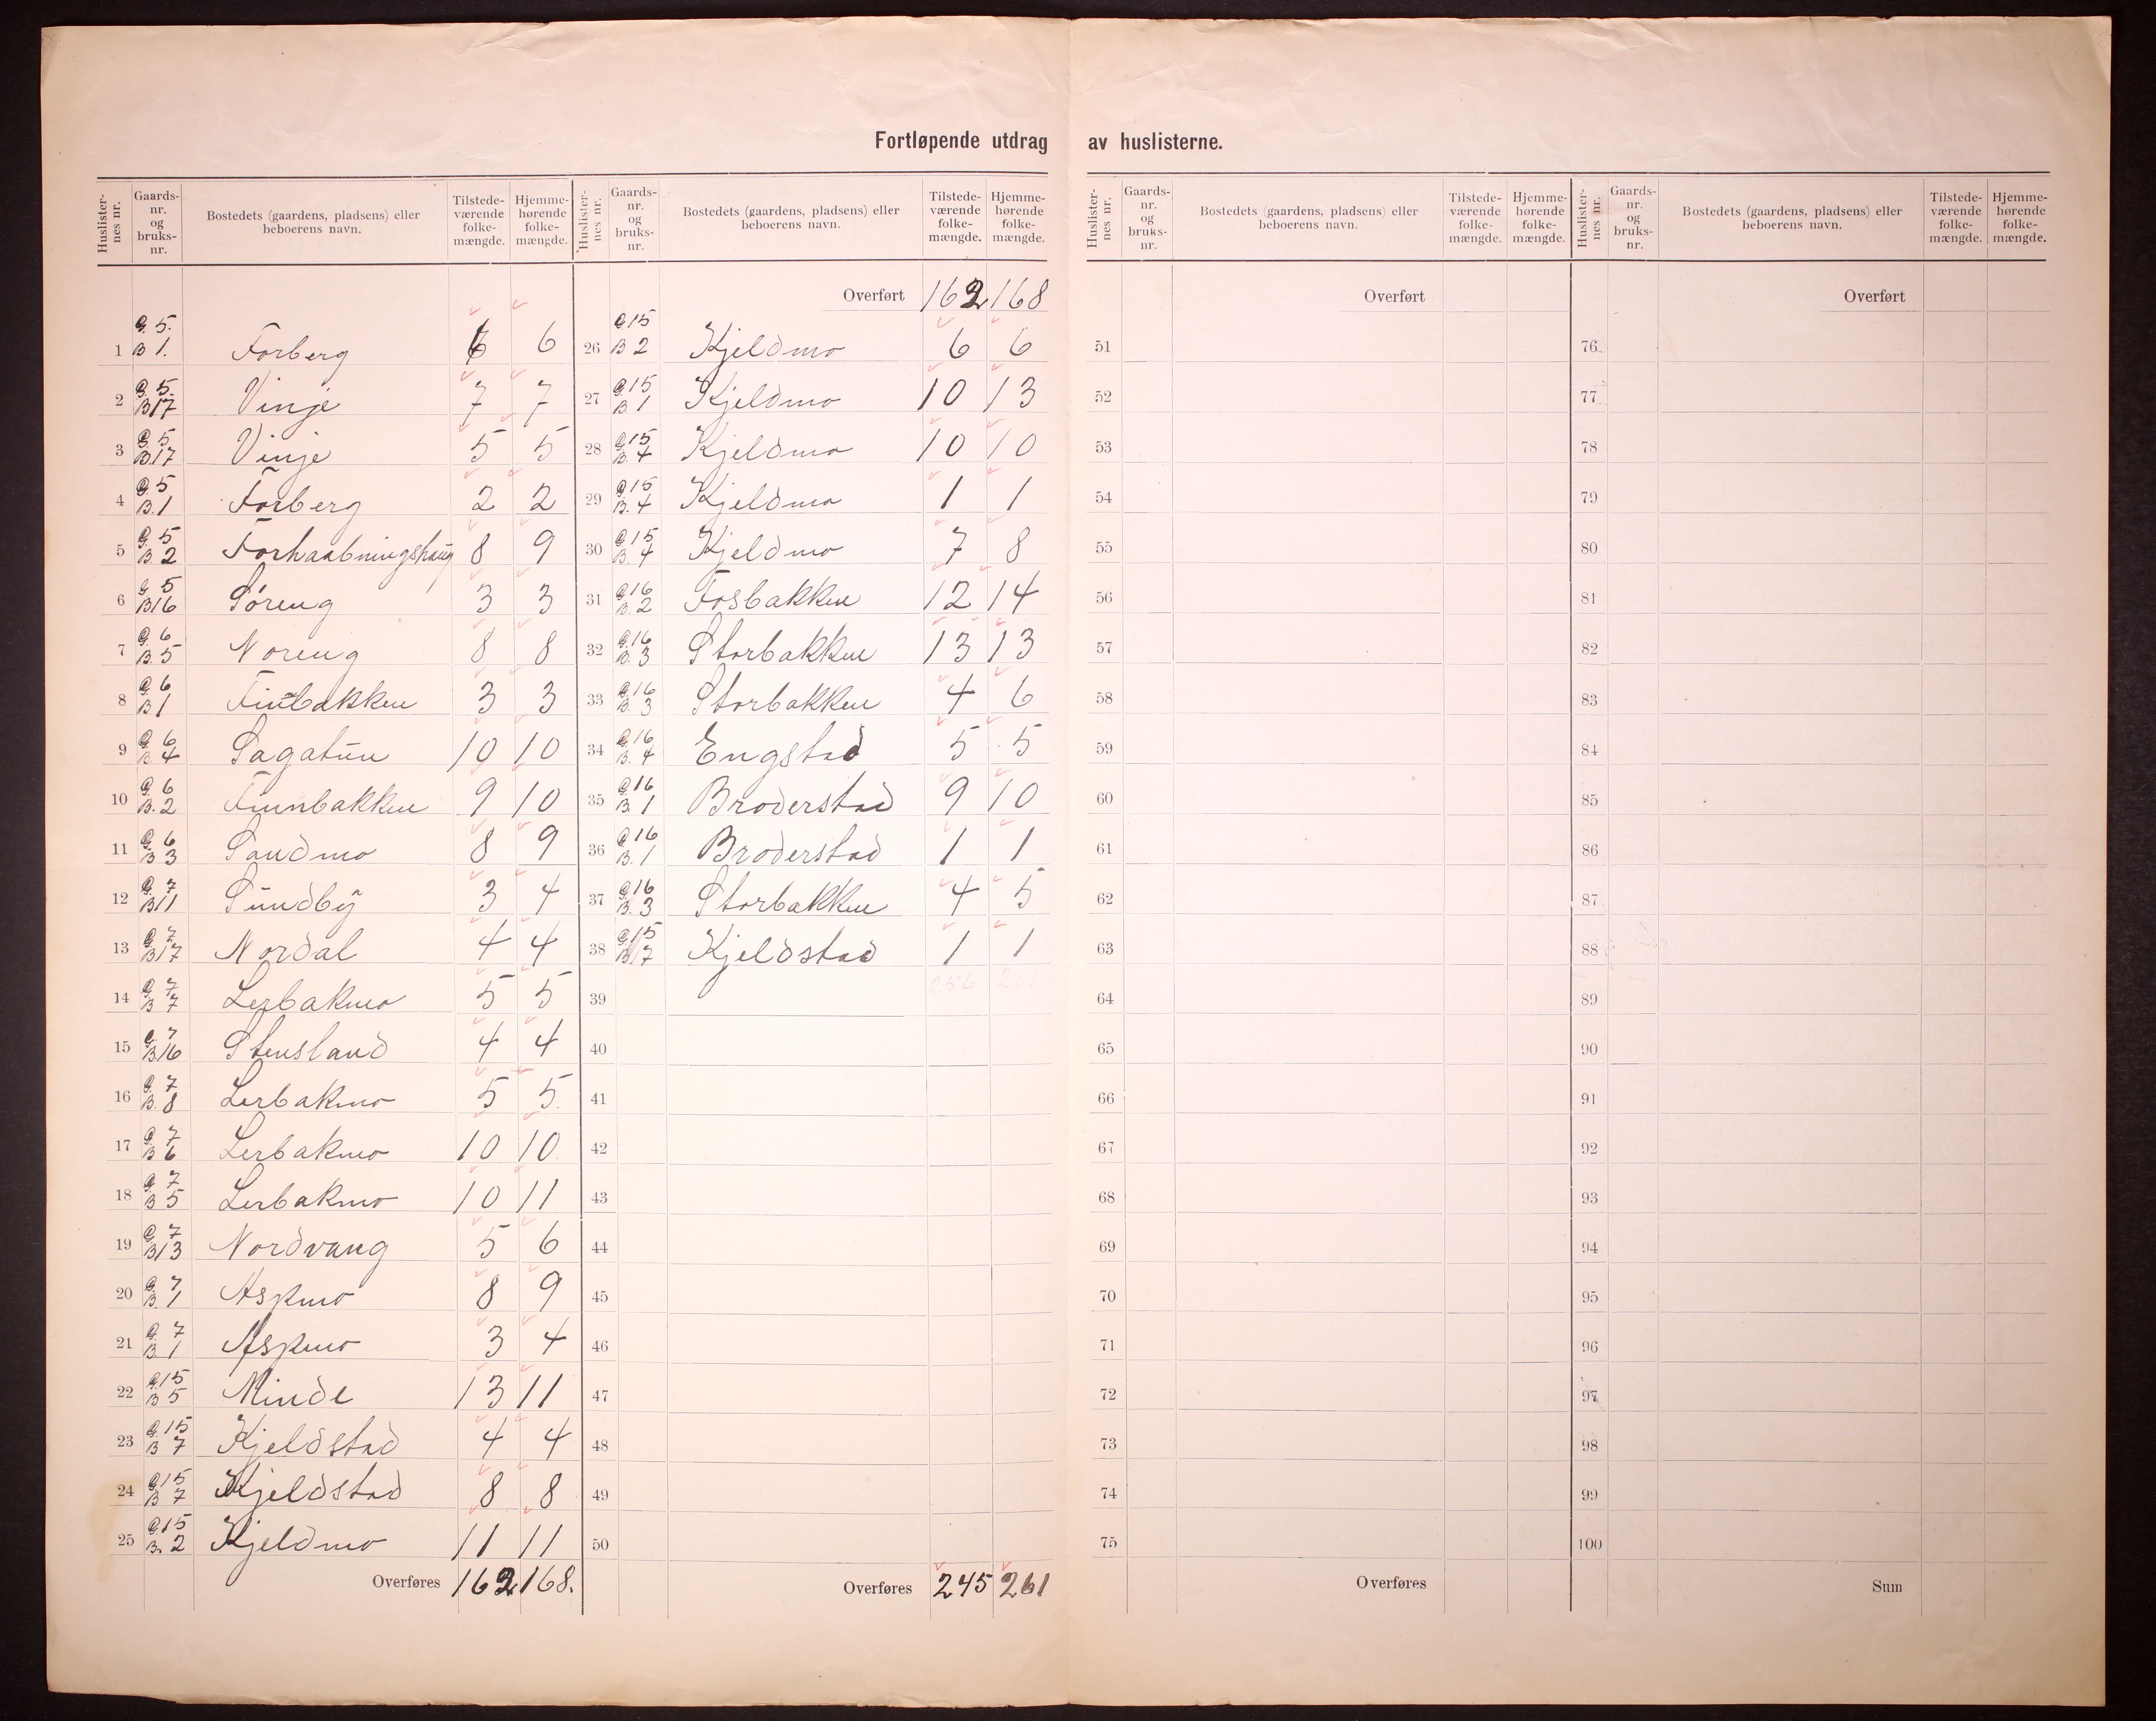 Fortløpende utdrag av huslisterne.
Huslisternes nr. Gaards-nr. og bruks-nr. Bostedets (gaardens, pladsens) eller beboerens navn. Tilstede-værende folke-mængde. Hjemme-hørende folke-mængde.
1 G. 5. B 1. Forberg 6 6
2 G. 5. B 17 Vinje 7 7
3 G. 5 B. 17 Vinje 5 5
4 G. 5 B. 1 Forberg 2 2
5 G. 5 B. 2 Forhaabningshaug 8 9
6 G. 5 B 16 Søreng 3 3
7 G. 6 B. 5 Noreng 8 8
8 G. 6 B 1 Finbakken 3 3
9 G. 6 B. 4 Sagatun 10 10
10 G. 6 B. 2 Finnbakken 9 10
11 G. 6 B 3 Sandmo 8 9
12 G. 7 B 11 Sundby 3 4
13 G. 7 B 17 Nordal 4 4
14 G. 7 B 7 Lerbakmo 5 5
15 G. 7 B. 16 Stensland 4 4
16 G. 7 B. 8 Lerbakmo 5 5.
17 G. 7 B 6 Lerbakmo 10 10.
18 G. 7 B 5 Lerbakmo 10 11
19 G. 7 B 13 Nordvang 5 6
20 G. 7 B. 1 Aspmo 8 9
21 G. 7 B. 1 Aspmo 3 4
22 G. 15 B 5 Minde 13 11
23 G. 15 B 7 Kjeldstad 4 4
24 G. 15 B 7 Kjeldstad 8 8
25 G. 15 B. 2 Kjeldmo 11 11
Overføres 162 168.
Huslisternes nr. Gaards-nr. og bruks-nr. Bostedets (gaardens, pladsens) eller beboerens navn. Tilstede-værende folke-mængde. Hjemme-hørende folke-mængde.
Overført 162 168
26 G 15 B 2 Kjeldmo 6 6
27 G. 15 B 1 Kjeldmo 10 13
28 G. 15 B. 4 Kjeldmo 10 10
29 G. 15 B. 4 Kjeldmo 1 1
30 G. 15 B 4 Kjeldmo 7 8
31 G. 16 B. 2 Fosbakken 12 14
32 G. 16 B. 3 Storbakken 13 13
33 G. 16 B. 3 Storbakken 4 6
34 G. 16 B. 4 Engstad 5 5
35 G. 16 B. 1 Broderstad 9 10
36 G. 16 B. 1 Broderstad 1 1
37 G. 16 B. 3 Storbakken 4 5
38 G. 15 B 7 Kjeldstad 1 1
39
40
41
42
43
44
45
46
47
48
49
50
Overføres 245 261
Huslisternes nr. Gaards-nr. og bruks-nr. Bostedets (gaardens, pladsens) eller beboerens navn. Tilstede-værende folke-mængde. Hjemme-hørende folke-mængde.
Overført
51
52
53
54
55
56
57
58
59
60
61
62
63
64
65
66
67
68
69
70
71
72
73
74
75
Overføres
Huslisternes nr. Gaards-nr. og bruks-nr. Bostedets (gaardens, pladsens) eller beboerens navn. Tilstede-værende folke-mængde. Hjemme-hørende folke-mængde.
Overført
76
77
78
79
80
81
82
83
84
85
86
87
88
89
90
91
92
93
94
95
96
97
98
99
100
Sum